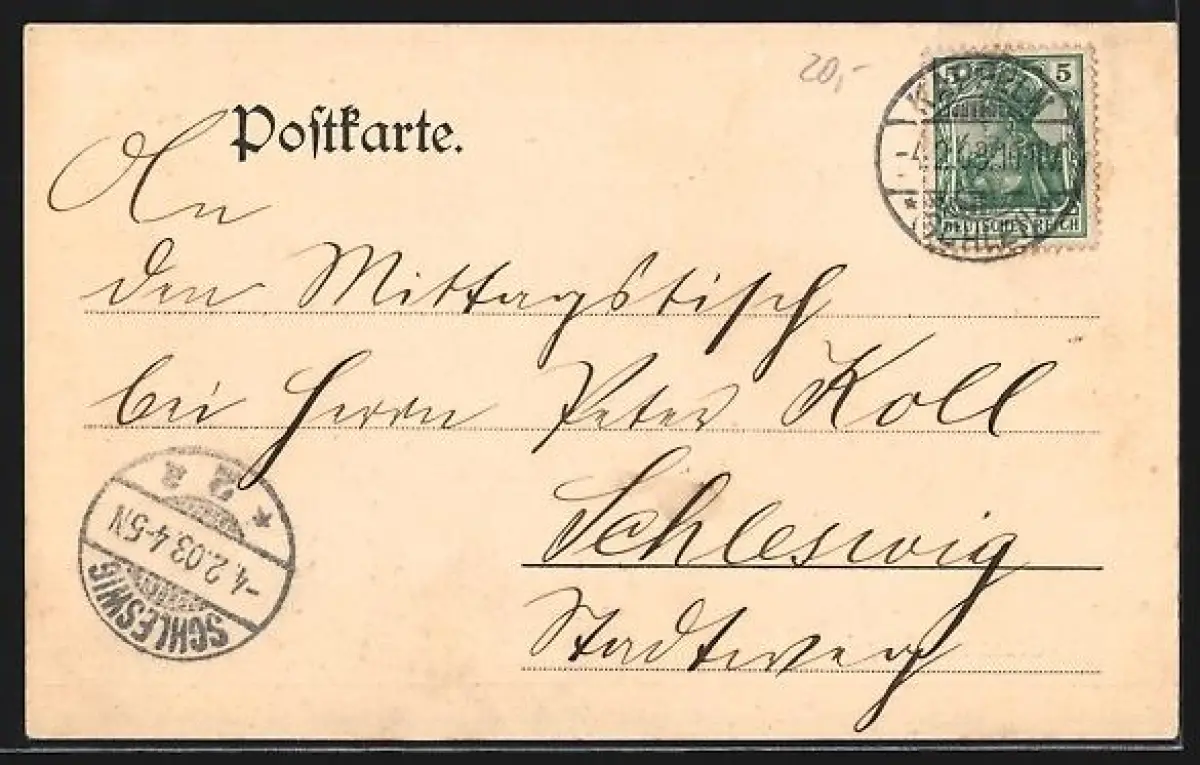 20,-
Postkarte.
5
KAPPELN
-4.2.03.
(SCHLEI)
DEUTSCHES REICH
An
den Mittagstisch
bei Herrn Peter Koll
Schleswig
Stadtweg
* 2 a
-4.2.03.4-5N
SCHLESWIG